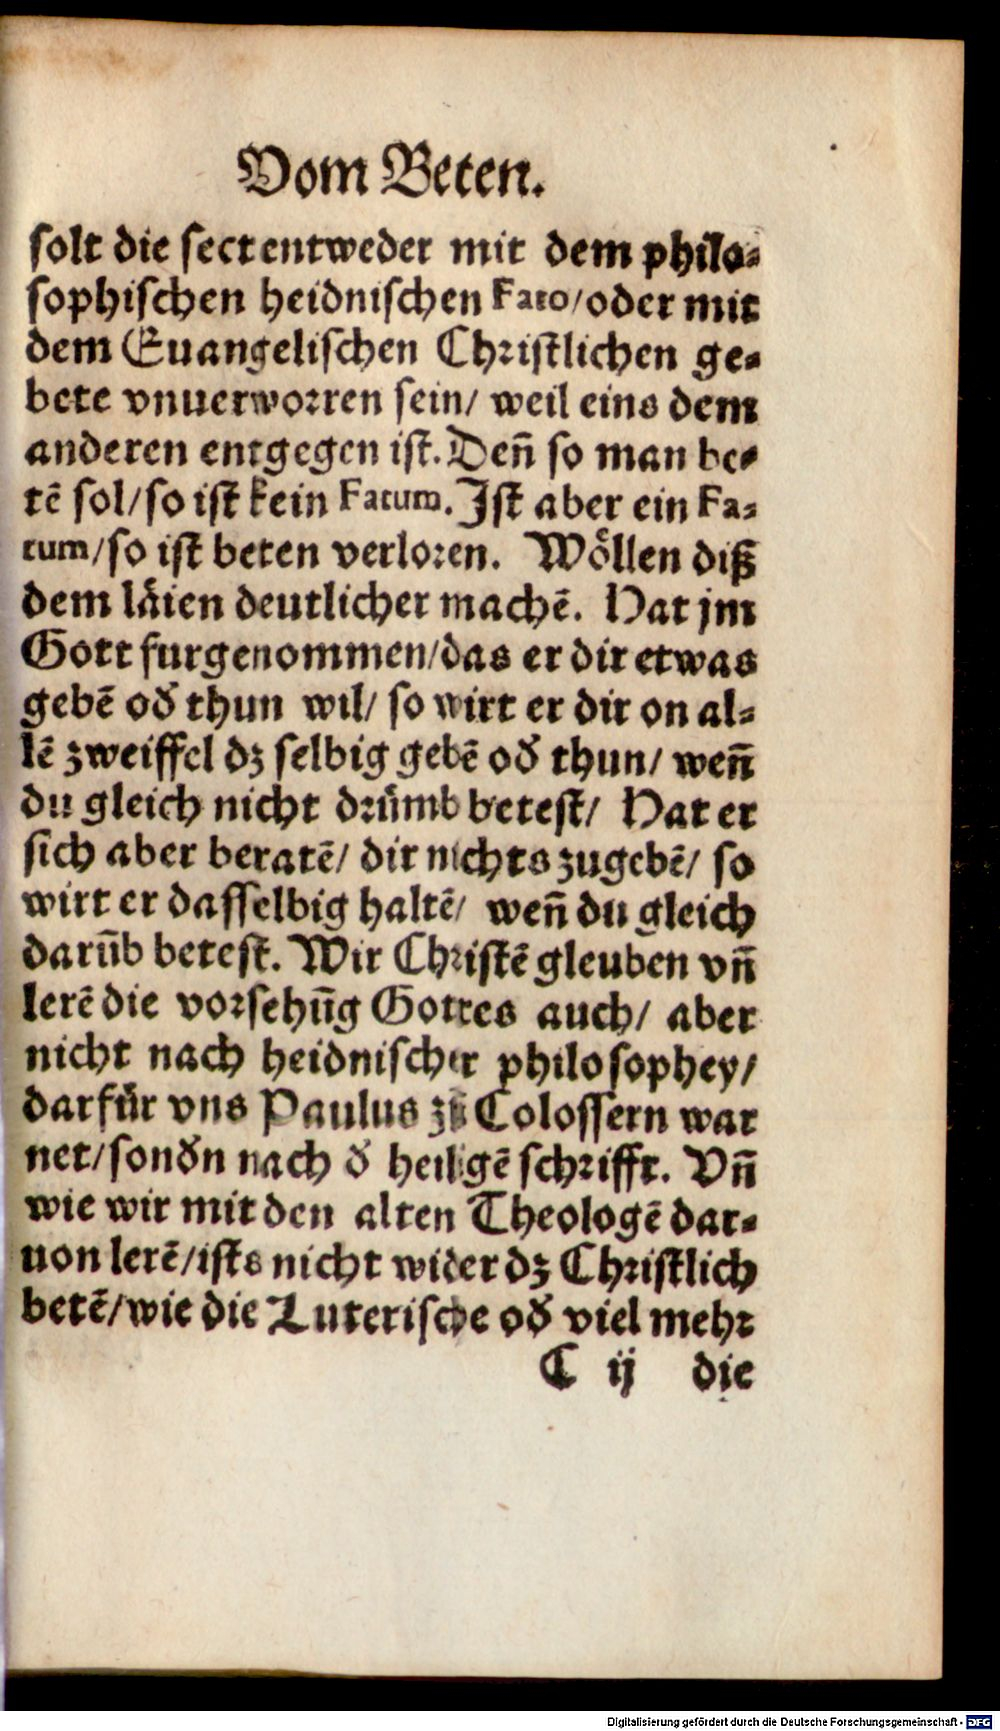 Vom Beten.
solt die sect entweder mit dem philo-
sophischen heidnischen Fato/oder mit
dem Euangelischen Christlichen ge-
bete vnuerworren sein/ weil eins dem
anderen entgegen ist. Deñ so man be-
tē sol/so ist kein Fatum. Ist aber ein Fa-
tum/so ist beten verloren. Wöllen diß
dem läien deutlicher machē. Hat jm
Gott furgenommen/das er dir etwas
gebē od̄ thun wil/ so wirt er dir on al-
lē zweiffel dz selbig gebē od̄ thun/ weñ
du gleich nicht drümb betest/ Hat er
sich aber beratē/ dir nichts zugebē/ so
wirt er dasselbig haltē/ weñ du gleich
darũb betest. Wir Christē gleuben vñ
lerē die vorsehũg Gottes auch/ aber
nicht nach heidnischer philosophey/
darfür vns Paulus zů Colossern war
net/sond̄n nach d̄ heiligē schrifft. Vñ
wie wir mit den alten Theologē dar-
uon lerē/ists nicht wider dz Christlich
betē/wie die Luterische od̄ viel mehr
C ij die
Digitalisierung gefördert durch die Deutsche Forschungsgemeinschaft - DFG